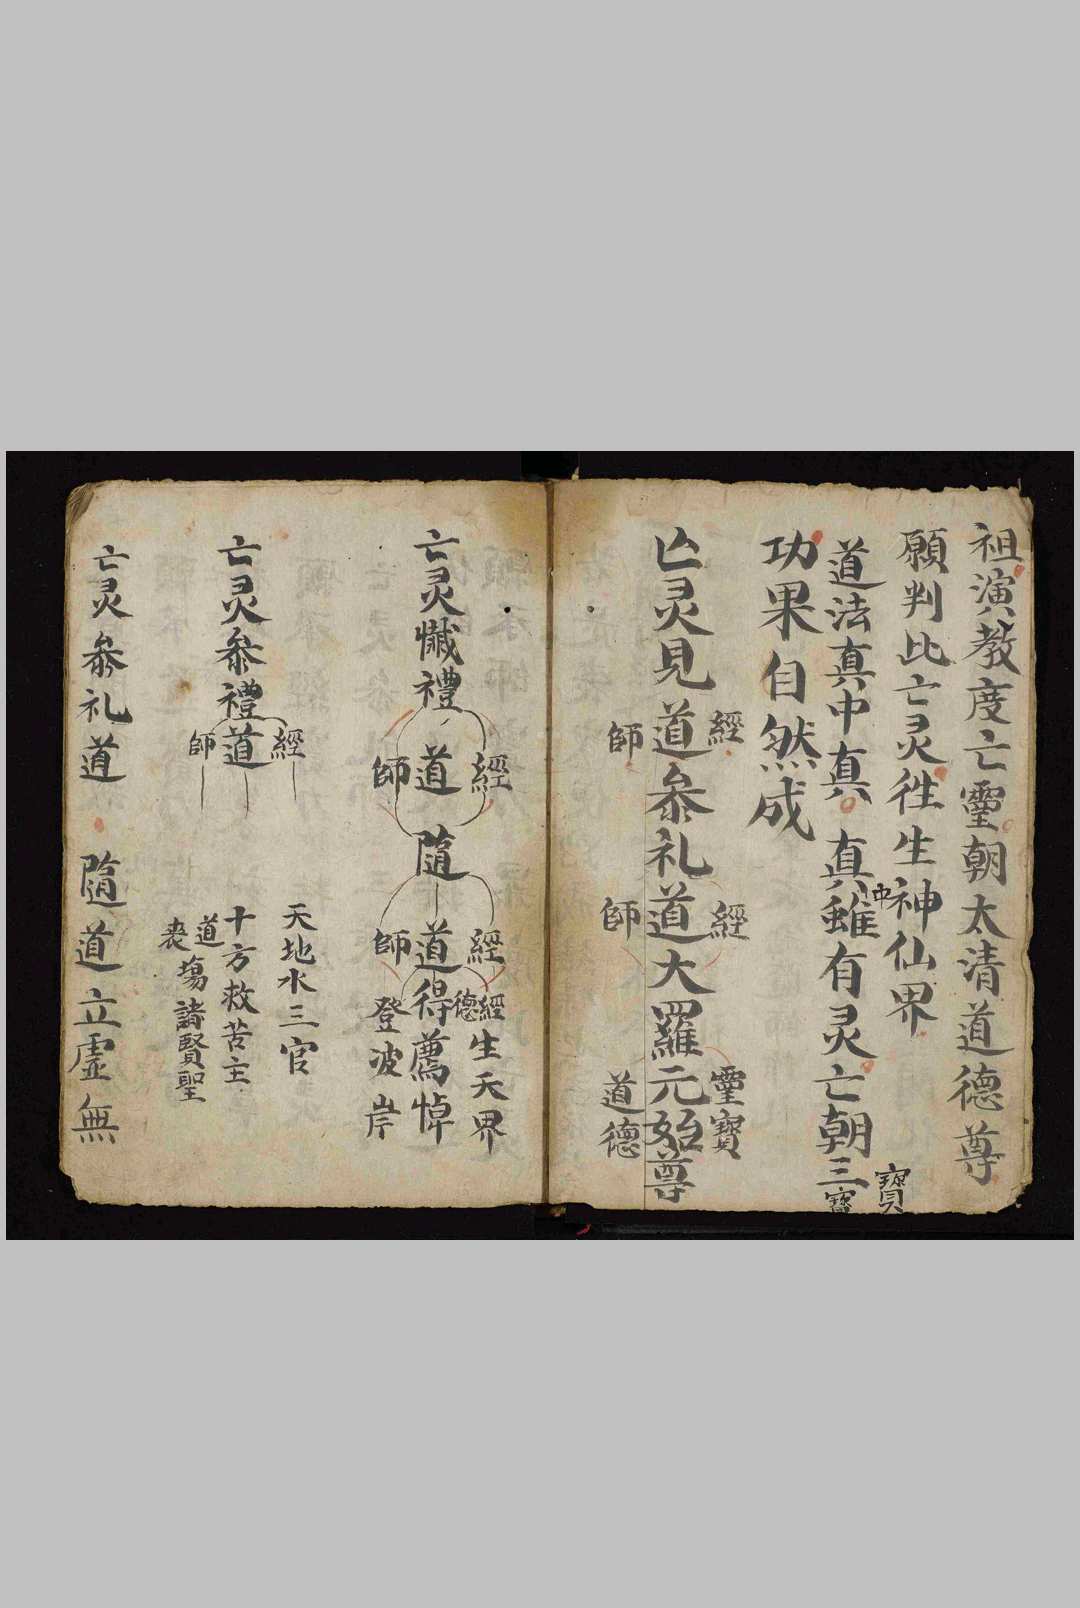 祖演教度亡靈朝太清道德尊
願判比亡灵徃生神仙界
道法真中真真中雖有灵亡朝三寶
寶
功果自然成
經 經 靈寶
亡灵見道参礼道大羅元始尊
師 師 道德
經 經 德經生天界
亡灵懺禮道隨道得薦悼
師 師 登波岸
經 天地水三官
亡灵叅禮道 十方救苦主
師 道喪場諸賢聖
亡灵叅礼道 隨道立虛無